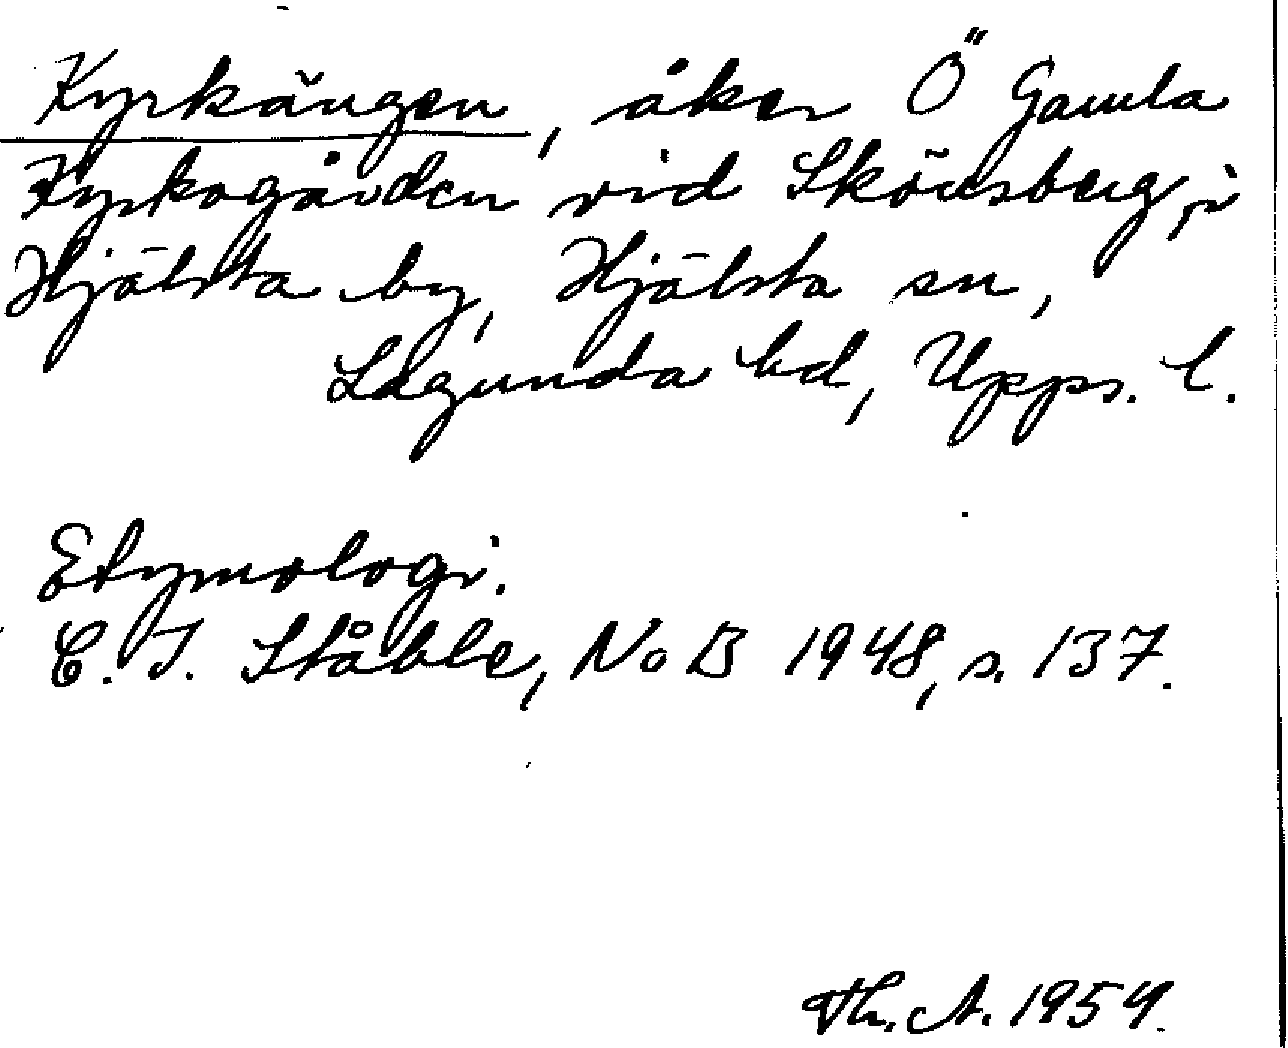 Kyrkängen, åker Ö Gamla
Kyrkogården vid Skönsberg, i
Hjälsta by, Hjälsta sn,
Lagunda hd, Upps. l.
Etymologi.
C. I. Ståhle, NoB 1948, s. 137.
Th. A. 1954.